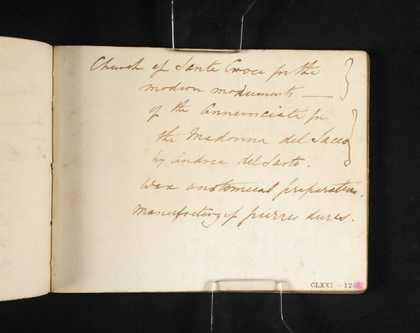 Church of Santa Croce for the
modern monuments —
of the Annunciata for
the Madonna del Sacco
by Andrea del Sarto.
Wax anatomical preparations.
Manufactory of pierres dures.
CLXXI - 12